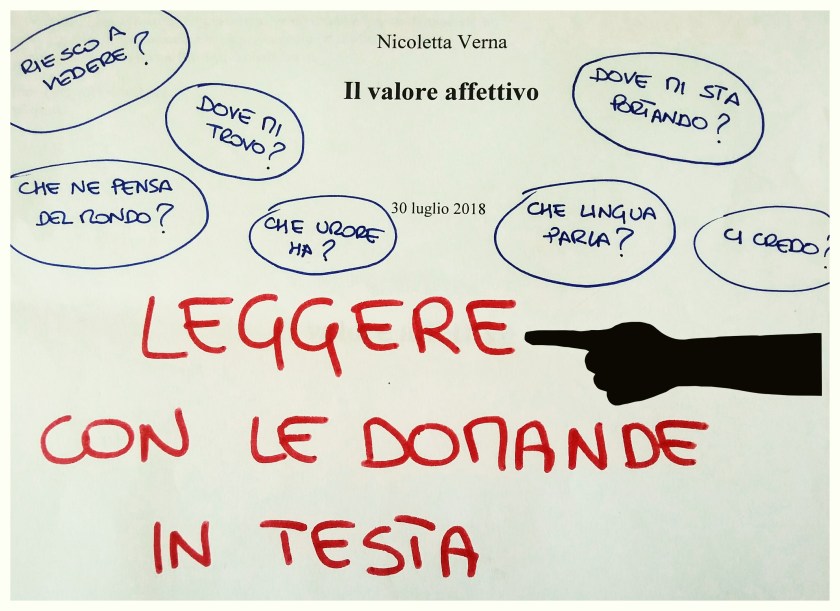 Nicoletta Verna
Il valore affettivo
30 luglio 2018
RIESCO A
VEDERE?
DOVE MI
TROVO?
DOVE MI STA
PORTANDO?
CHE NE PENSA
DEL MONDO?
CHE UMORE
HA?
CHE LINGUA
PARLA?
CI CREDO?
LEGGERE
CON LE DOMANDE
IN TESTA